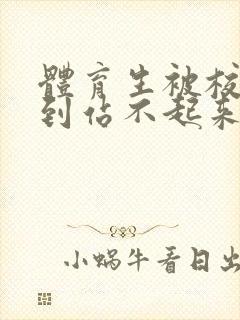 體育生被校
到佔不起來
小蝸牛看日出